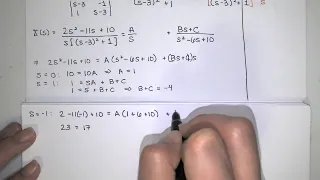 | s 1 |
| 1 s-3 | (s-3)² + 1 (s-3)² + 1
Y(s) = 2s² - 11s + 10 / s[(s-3)² + 1] = A/s + Bs + C / s² - 6s + 10
⇒ 2s² - 11s + 10 = A(s² - 6s + 10) + (Bs + C)s
s = 0: 10 = 10A ⇒ A = 1
s = 1: 1 = 5A + B + C
1 = 5 + B + C ⇒ B + C = -4
s = -1: 2 - 11(-1) + 10 = A(1 + 6 + 10) +
23 = 17